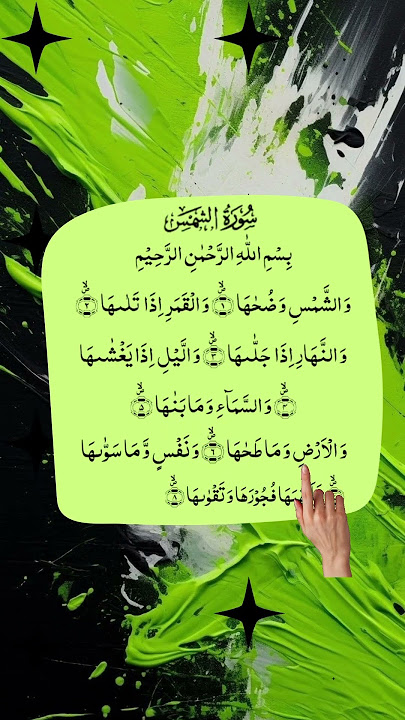 سُوْرَةُ الشَّمْسِ
بِسْمِ اللّٰهِ الرَّحْمٰنِ الرَّحِيْمِ
وَالشَّمْسِ وَضُحٰىهَا ۙ﴿۱﴾ وَالْقَمَرِ اِذَا تَلٰىهَا ۙ﴿۲﴾
وَالنَّهَارِ اِذَا جَلّٰىهَا ۙ﴿۳﴾ وَالَّيْلِ اِذَا يَغْشٰىهَا
ۙ﴿۴﴾ وَالسَّمَآءِ وَمَا بَنٰىهَا ۙ﴿۵﴾
وَالْاَرْضِ وَمَا طَحٰىهَا ۙ﴿۶﴾ وَنَفْسٍ وَّمَا سَوّٰىهَا
فُجُوْرَهَا وَتَقْوٰىهَا ۙ﴿۸﴾